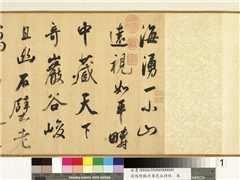 海湧一小山
遠視如平疇
中藏天下
奇巖谷峻
且幽石壁老
1